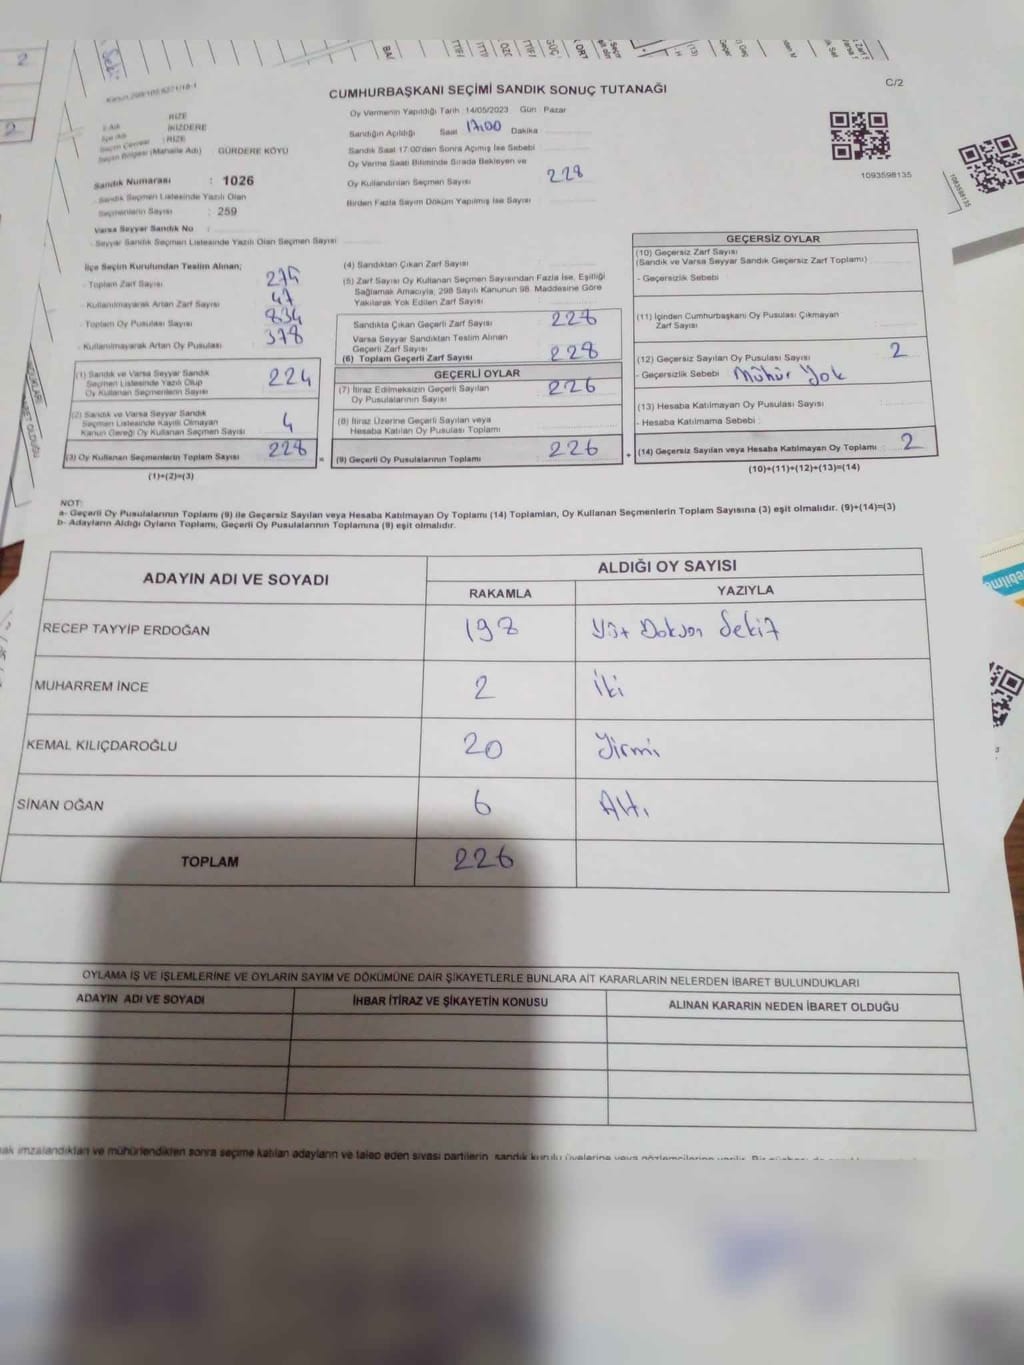 C/2
CUMHURBAŞKANI SEÇİMİ SANDIK SONUÇ TUTANAĞI
Oy Vermenin Yapıldığı Tarih : 14/05/2023 Gün : Pazar
Sandığın Açıldığı Saat 17:00 Dakika
Sandık Saat 17:00'den Sonra Açımış İse Sebebi
Oy Verme Saati Bitiminde Sırada Bekleyen ve
Oy Kullandırılan Seçmen Sayısı 228
Birden Fazla Sayım Döküm Yapılmış İse Sayısı
1093598135
1093598135
: RİZE
İlçe Adı : İKİZDERE
Seçim Çevresi : RİZE
Seçim Bölgesi (Mahalle Adı) GÜRDERE KÖYÜ
Sandık Numarası : 1026
- Sandık Seçmen Listesinde Yazılı Olan
Seçmenlerin Sayısı : 259
Varsa Seyyar Sandık No :
- Seyyar Sandık Seçmen Listesinde Yazılı Olan Seçmen Sayısı
İlçe Seçim Kurulundan Teslim Alınan;
- Toplam Zarf Sayısı 275
- Kullanılmayarak Artan Zarf Sayısı 47
- Toplam Oy Pusulası Sayısı 834
- Kullanılmayarak Artan Oy Pusulası 378
(1) Sandık ve Varsa Seyyar Sandık
Seçmen Listesinde Yazılı Olup
Oy Kullanan Seçmenlerin Sayısı 224
(2) Sandık ve Varsa Seyyar Sandık
Seçmen Listesinde Kayıtlı Olmayan
Kanun Gereği Oy Kullanan Seçmen Sayısı 4
(3) Oy Kullanan Seçmenlerin Toplam Sayısı 228 =
(1)+(2)=(3)
(4) Sandıktan Çıkan Zarf Sayısı :
(5) Zarf Sayısı Oy Kullanan Seçmen Sayısından Fazla İse, Eşitliği
Sağlamak Amacıyla, 298 Sayılı Kanunun 98. Maddesine Göre
Yakılarak Yok Edilen Zarf Sayısı :
Sandıkta Çıkan Geçerli Zarf Sayısı 228
Varsa Seyyar Sandıktan Teslim Alınan
Geçerli Zarf Sayısı
(6) Toplam Geçerli Zarf Sayısı 228
GEÇERLİ OYLAR
(7) İtiraz Edilmeksizin Geçerli Sayılan
Oy Pusulalarının Sayısı 226
(8) İtiraz Üzerine Geçerli Sayılan veya
Hesaba Katılan Oy Pusulası Toplamı
(9) Geçerli Oy Pusulalarının Toplamı 226 +
GEÇERSİZ OYLAR
(10) Geçersiz Zarf Sayısı
(Sandık ve Varsa Seyyar Sandık Geçersiz Zarf Toplamı)
- Geçersizlik Sebebi
(11) İçinden Cumhurbaşkanı Oy Pusulası Çıkmayan
Zarf Sayısı
(12) Geçersiz Sayılan Oy Pusulası Sayısı 2
- Geçersizlik Sebebi Mühür Yok
(13) Hesaba Katılmayan Oy Pusulası Sayısı
- Hesaba Katılmama Sebebi
(14) Geçersiz Sayılan veya Hesaba Katılmayan Oy Toplamı 2
(10)+(11)+(12)+(13)=(14)
NOT:
a- Geçerli Oy Pusulalarının Toplamı (9) ile Geçersiz Sayılan veya Hesaba Katılmayan Oy Toplamı (14) Toplamları, Oy Kullanan Seçmenlerin Toplam Sayısına (3) eşit olmalıdır. (9)+(14)=(3)
b- Adayların Aldığı Oyların Toplamı, Geçerli Oy Pusulalarının Toplamına (9) eşit olmalıdır.
ADAYIN ADI VE SOYADI ALDIĞI OY SAYISI
RAKAMLA YAZIYLA
RECEP TAYYİP ERDOĞAN 198 Yüz Doksan Sekiz
MUHARREM İNCE 2 İki
KEMAL KILIÇDAROĞLU 20 Yirmi
SİNAN OĞAN 6 Altı
TOPLAM 226
OYLAMA İŞ VE İŞLEMLERİNE VE OYLARIN SAYIM VE DÖKÜMÜNE DAİR ŞİKAYETLERLE BUNLARA AİT KARARLARIN NELERDEN İBARET BULUNDUKLARI
ADAYIN ADI VE SOYADI İHBAR İTİRAZ VE ŞİKAYETİN KONUSU ALINAN KARARIN NEDEN İBARET OLDUĞU
imzalandıktan ve mühürlendikten sonra seçime katılan adayların ve talep eden siyasi partilerin sandık kurulu üyelerine veya